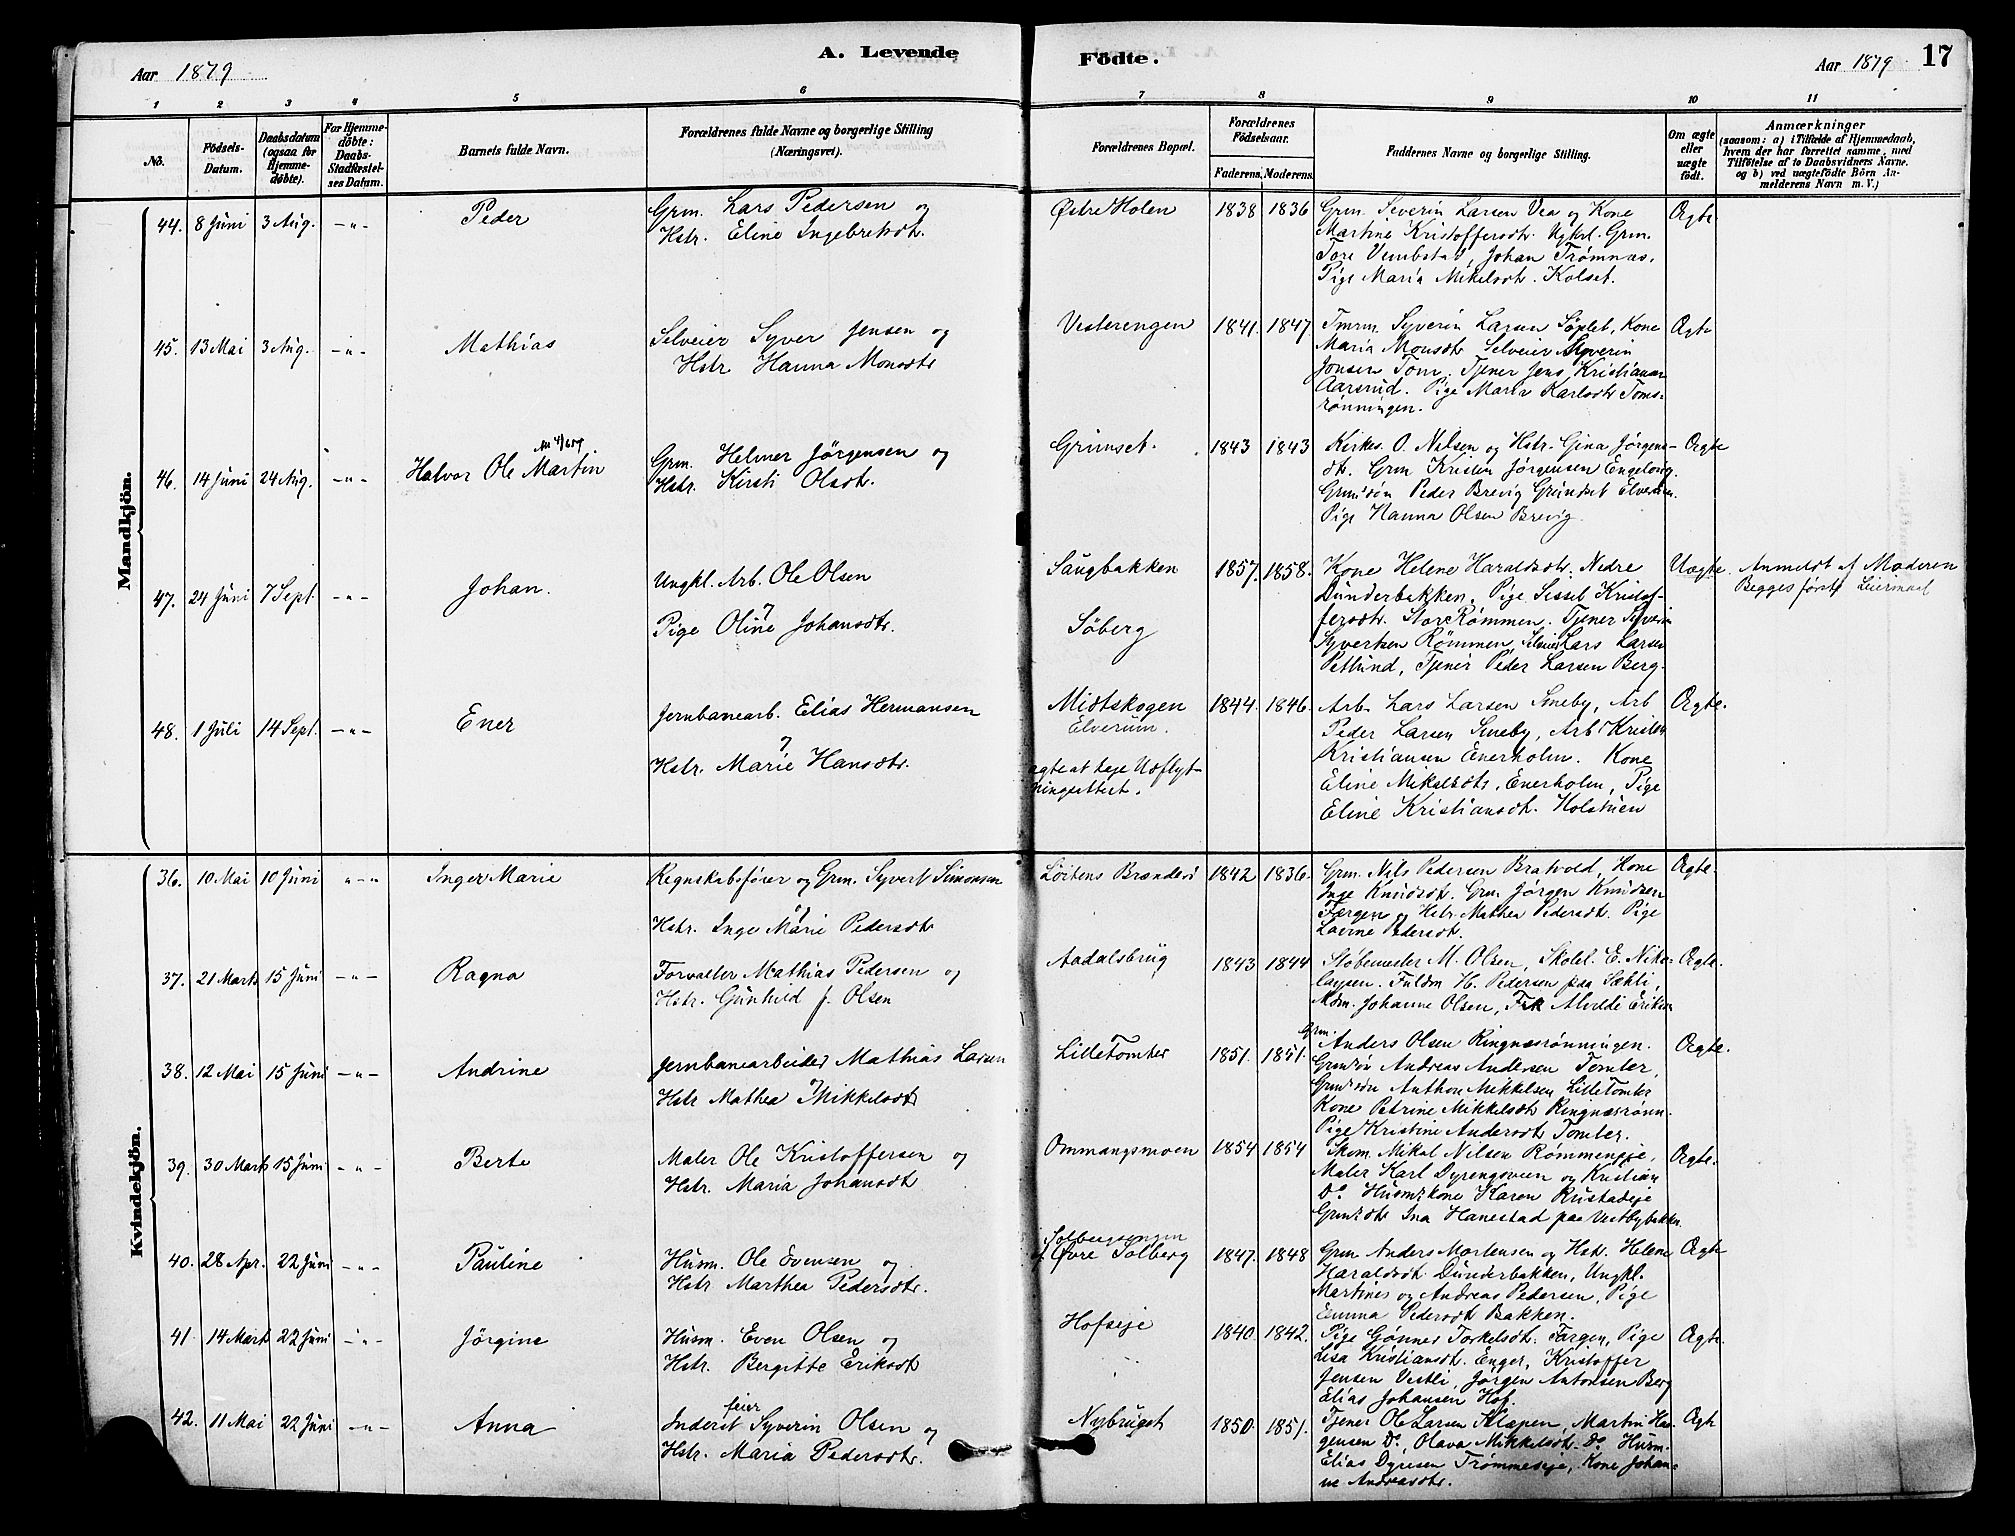 Aar 1879
A. Levende
Födte.
Aar 1879
17
1 2 3 4 5 6 7 8 9 10 11
No.
Födsels-
Datum.
Daabsdatum
(ogsaa for
Hjemme-
döbte).
For Hjemme-
döbte:
Daabs-
Stadfæstel-
ses Datum.
Barnets fulde Navn.
Forældrenes fulde Navne og borgerlige Stilling
(Næringsvei).
Forældrenes Bopæl.
Forældrenes
Födselsaar.
Faderens. Moderens.
Faddernes Navne og borgerlige Stilling.
Om ægte
eller
uægte
födt.
Anmærkninger
(saasom: a) i Tilfælde af Hjemmedaab,
hvem der har forrettet samme, med
Tilföielse af to Daabsvidners Navne.
og b) ved uægtefödte Börn An-
melderens Navn m. V.)
Mandkjön.
44. 8 Juni 3 Aug. -"- Peder
Grm. Lars Pedersen og
Hstr. Eline Ingebretsdt.
Østre Holen 1838 1836
Grm. Severin Larsen Vea og Kone
Martine Kristoffersdt. Ugkrl. Grm.
Tore Vembstad, Johan Trømnæs,
Pige Maria Mikelsdt. Kolset.
Ægte
45. 13 Mai 3 Aug. -"- Mathias
Selveier Syver Jensen og
Hstr Hanna Monsdtr
Vesterengen 1841. 1847
Tmrm. Syverin Larsen Søplet, Kone
Maria Monsdtr Selveier Syverin
Jonsen Tom. Tjener Jens Kristiansen
Aarsrud. Pige Maria Karlsdtr Toms-
rønningen.
Ægte
46. 14 Juni 24 Aug. -"- Halvor Ole Martin
Grm. Helmer Jørgensen og
Hstr. Kirsti Olsdtr.
Grimset. 1843 1843
Kirkes. O. Nilsen og Hstr. Gina Jørgens-
dt. Grm Kristen Jørgensen Engelong.
Grmsøn Peder Brevig Grundset Elverum.
Pige Hanna Olsen Brevig.
Ægte
47. 24 Juni 7 Sept. -"- Johan.
Ungkl. Arb. Ole Olsen
og
Pige Oline Johansdtr.
Saugbakken
Søberg
1857. 1858.
Kone Helene Haraldsdtr. Nedre
Dunderbakken. Pige Sissel Kristof-
fersdtr. Store Rømmen. Tjener Syverin
Syvertsen Rømmen, Selveier Lars Larsen
Petlund, Tjener Peder Larsen Berg.
Uægte. Anmeldt af Moderen
Begges første Leiermaal
48. 1 Juli 14 Sept. -"- Ener
Jernbanearb. Elias Hermansen
og
Hstr. Marie Hansdtr.
Midtskogen
Elverum.
agte at tage Udflyt-
ningsattest.
1844. 1846.
Arb. Lars Larsen Smeby, Arb
Peder Larsen Smeby, Arb Kristen
Kristiansen Enerholm. Kone
Eline Mikalsdtr, Enerholm, Pige
Eline Kristiansdt. Holstuen
Ægte.
Kvindekjön.
36. 10 Mai 10 Juni "-" Inger Marie
Regnskabsfører og Grm. Syvert Simonsen
og
Hstr. Inge Marie Pedersdtr
Løitens Brænderi 1842 1836.
Grm. Nils Pedersen Bratvold, Kone
Inge Knudsdt. Grm Jørgen Knudsen
Færgen og Hstr. Mathea Pedersdt. Pige
Lovine Pedersdt.
Ægte.
37. 21 Marts 15 Juni -"- Ragna
Forvalter Mathias Pedersen og
Hstr. Gunhild f. Olsen
Aadalsbrug 1843 1844
Støbemester M. Olsen, Skolel. E. Niko-
laysen. Fuldm H. Pedersen paa Sæhli,
Mdm. Johanne Olsen, Frk Alvilde Eriksen
Ægte.
38. 12 Mai 15 Juni -"- Andrine
Jernbanearbeider Mathias Larsen
og
Hstr Mathea Mikkelsdtr
Lille Tomter 1851. 1851.
Grm.
Anders Olsen Ringnæsrønningen.
Grmsøn Andreas Andersen Tomter,
Grmsøn Anthon Mikkelsen Lille Tomter
Kone Petrine Mikkelsdt Ringnæsrønn.
Pige Kristine Andersdt Tomter.
Ægte.
39. 30 Marts 15 Juni -"- Berte
Maler Ole Kristoffersen og
Hstr. Maria Johansdt
Ommangsmoen 1854 1854
Skom. Mikal Nilsen Rømmenseje,
Maler Karl Dyrengsveen og Kristian
Do Husmskone Karen Rustadeje
Grmsdtr Ina Hanestad paa Vestbybakken
Ægte.
40. 28 Apr. 22 Juni -"- Pauline
Husm. Ole Evensen og
Hstr. Marthea Pedersdtr.
Solbergsengen
u. Øvre Solberg 1847. 1848
Grm. Anders Mortensen og Hstr. Helene
Haraldsdt. Dunderbakken, Ungkl.
Martines og Andreas Pedersen, Pige
Emma Pedersdt Bakken.
Ægte
41 14 Marts 22 Juni -"- Jörgine
Husm. Even Olsen og
Hstr. Bergitte Eriksdt
Hofseje 1840 1842.
Pige Gønner Torkelsdt. Færgen, Pige
Lisa Kristiansdt. Enger, Kristoffer
Jensen Vestli, Jørgen Antonsen Berg
Elias Johansen Hof.
Ægte.
42. 11 Mai 22 Juni -"- Anna
feier
Inderst Syverin Olsen og
Hstr. Maria Pedersdtr.
Nybruget 1850. 1851.
Tjener Ole Larsen Klæpen, Martin Haa-
gensen Do., Olava Mikkelsdt Do Husm.
Elias Dyresen Trømmeseje, Kone Johan-
ne Andreasdtr.
Ægte